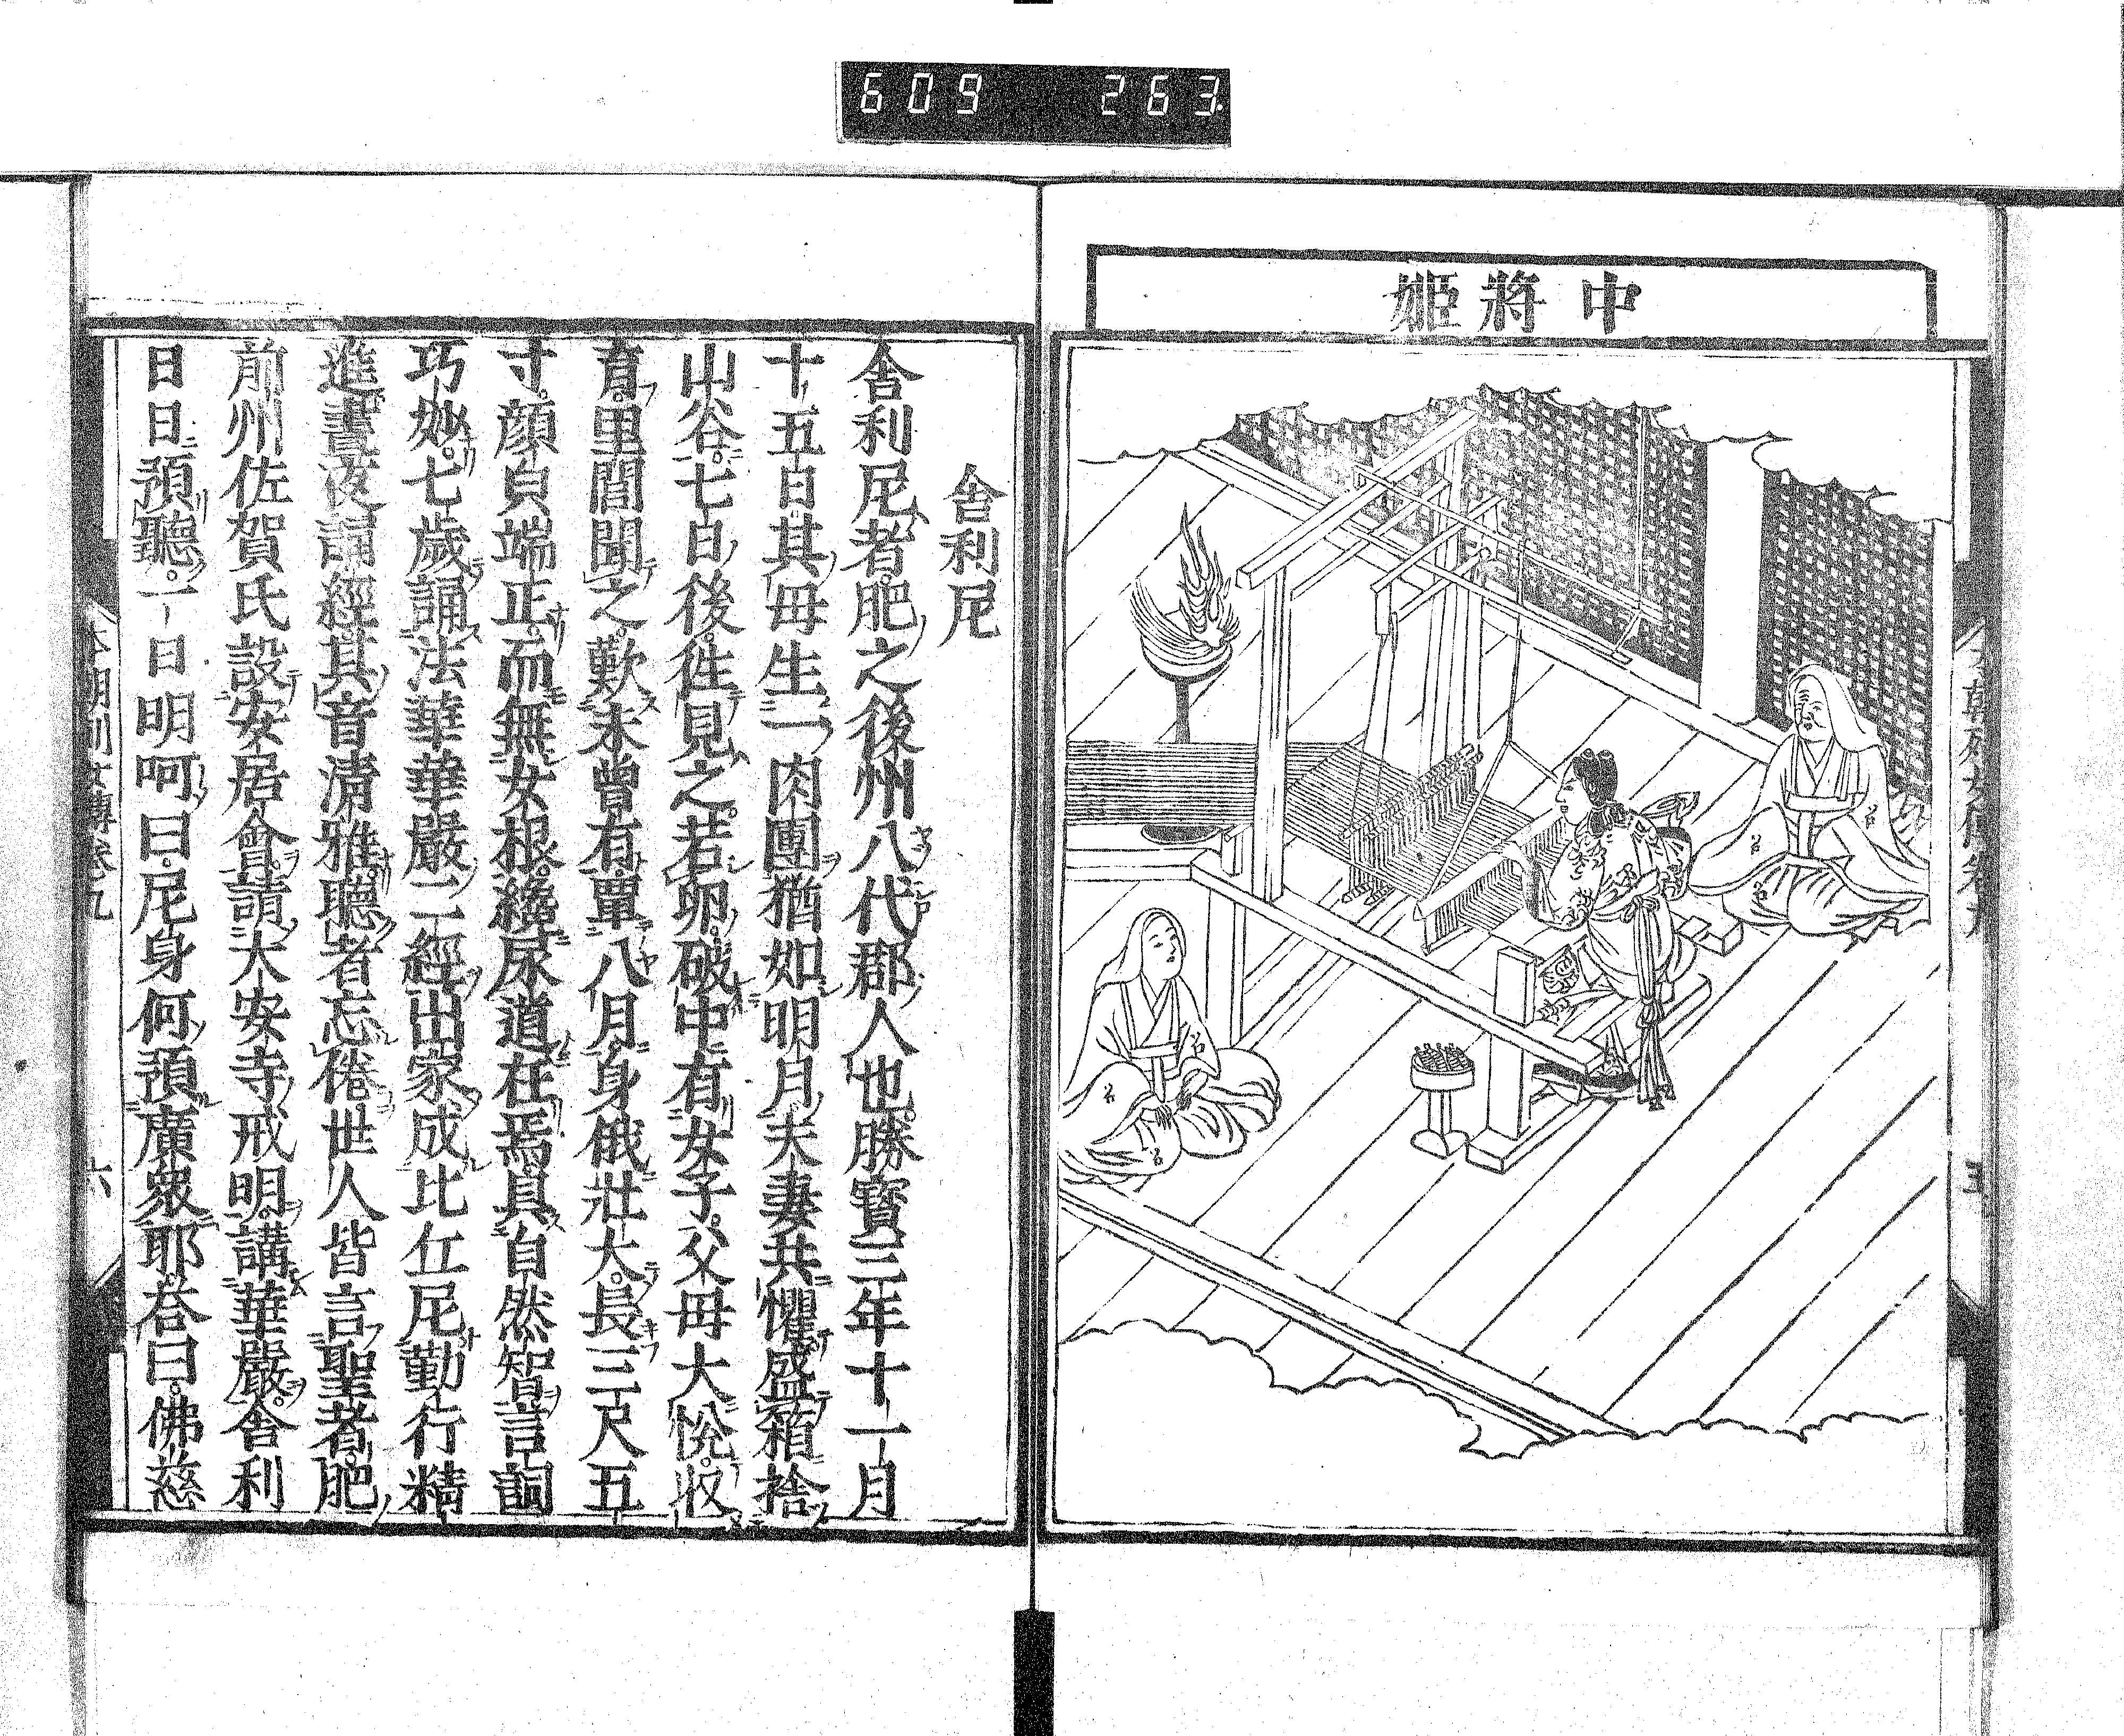 609 263
中將姬
舎利尼
舎利尼者肥之後州八代郡人也勝寶三年十一月
十五日其母生一肉團猶如明月夫妻共懼盛箱捨
山谷七日後徃見之若卵破中有女子父母大悅収
育里閭聞之歎未曾有覃八月身俄壯大長三尺五
寸顔皃端正而無女根纔尿道在焉具自然智言詞
巧妙七歲誦法華華嚴二經出家成比丘尼勤行精
進晝夜誦經其音淸雅聽者忘倦世人皆言聖者肥
前州佐賀氏設安居會請大安寺戒明講華嚴舎利
日日預聽一日明呵曰尼身何預廣衆耶荅曰佛慈
本朝列女傳卷九 六